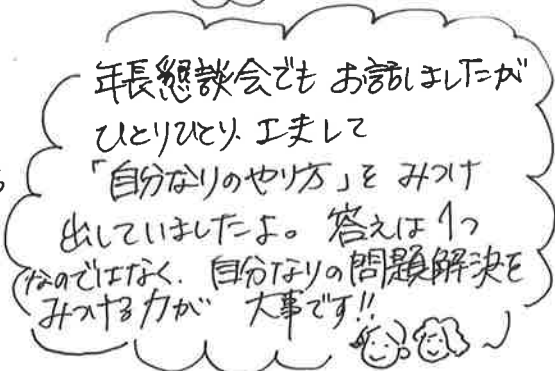 年長懇談会でも お話しましたが
ひとりひとり、工夫して
「自分なりのやり方」を みつけ
出していましたよ。 答えは1つ
なのではなく、自分なりの問題解決を
みつける力が 大事です!!